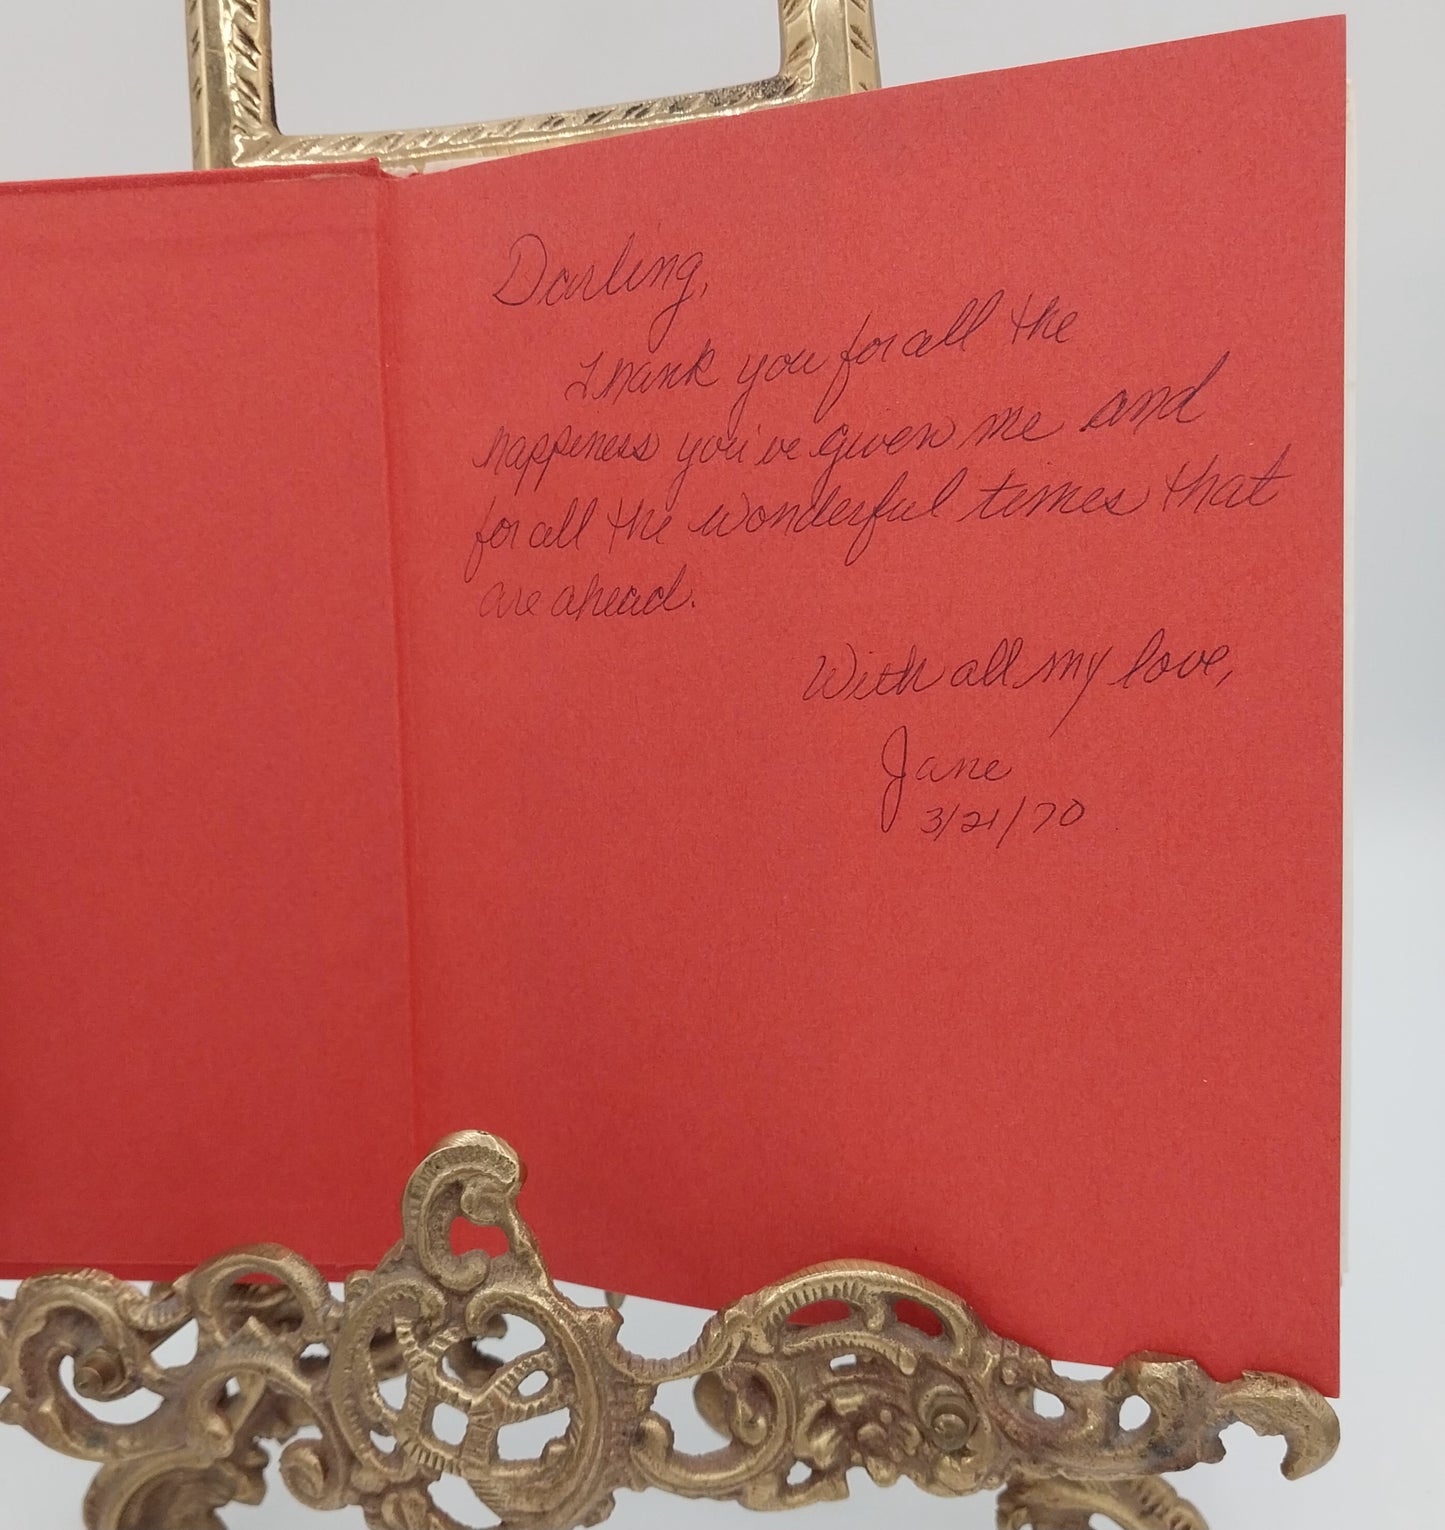 Darling,
Thank you for all the
happiness you've given me and
for all the wonderful times that
are ahead.
With all my love,
Jane
3/21/70